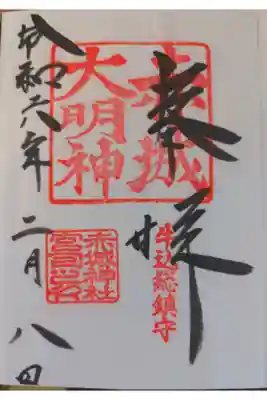 奉拝
赤城
大明神
牛込総鎮守
赤城神社
宮司之印
令和六年
二月
八日